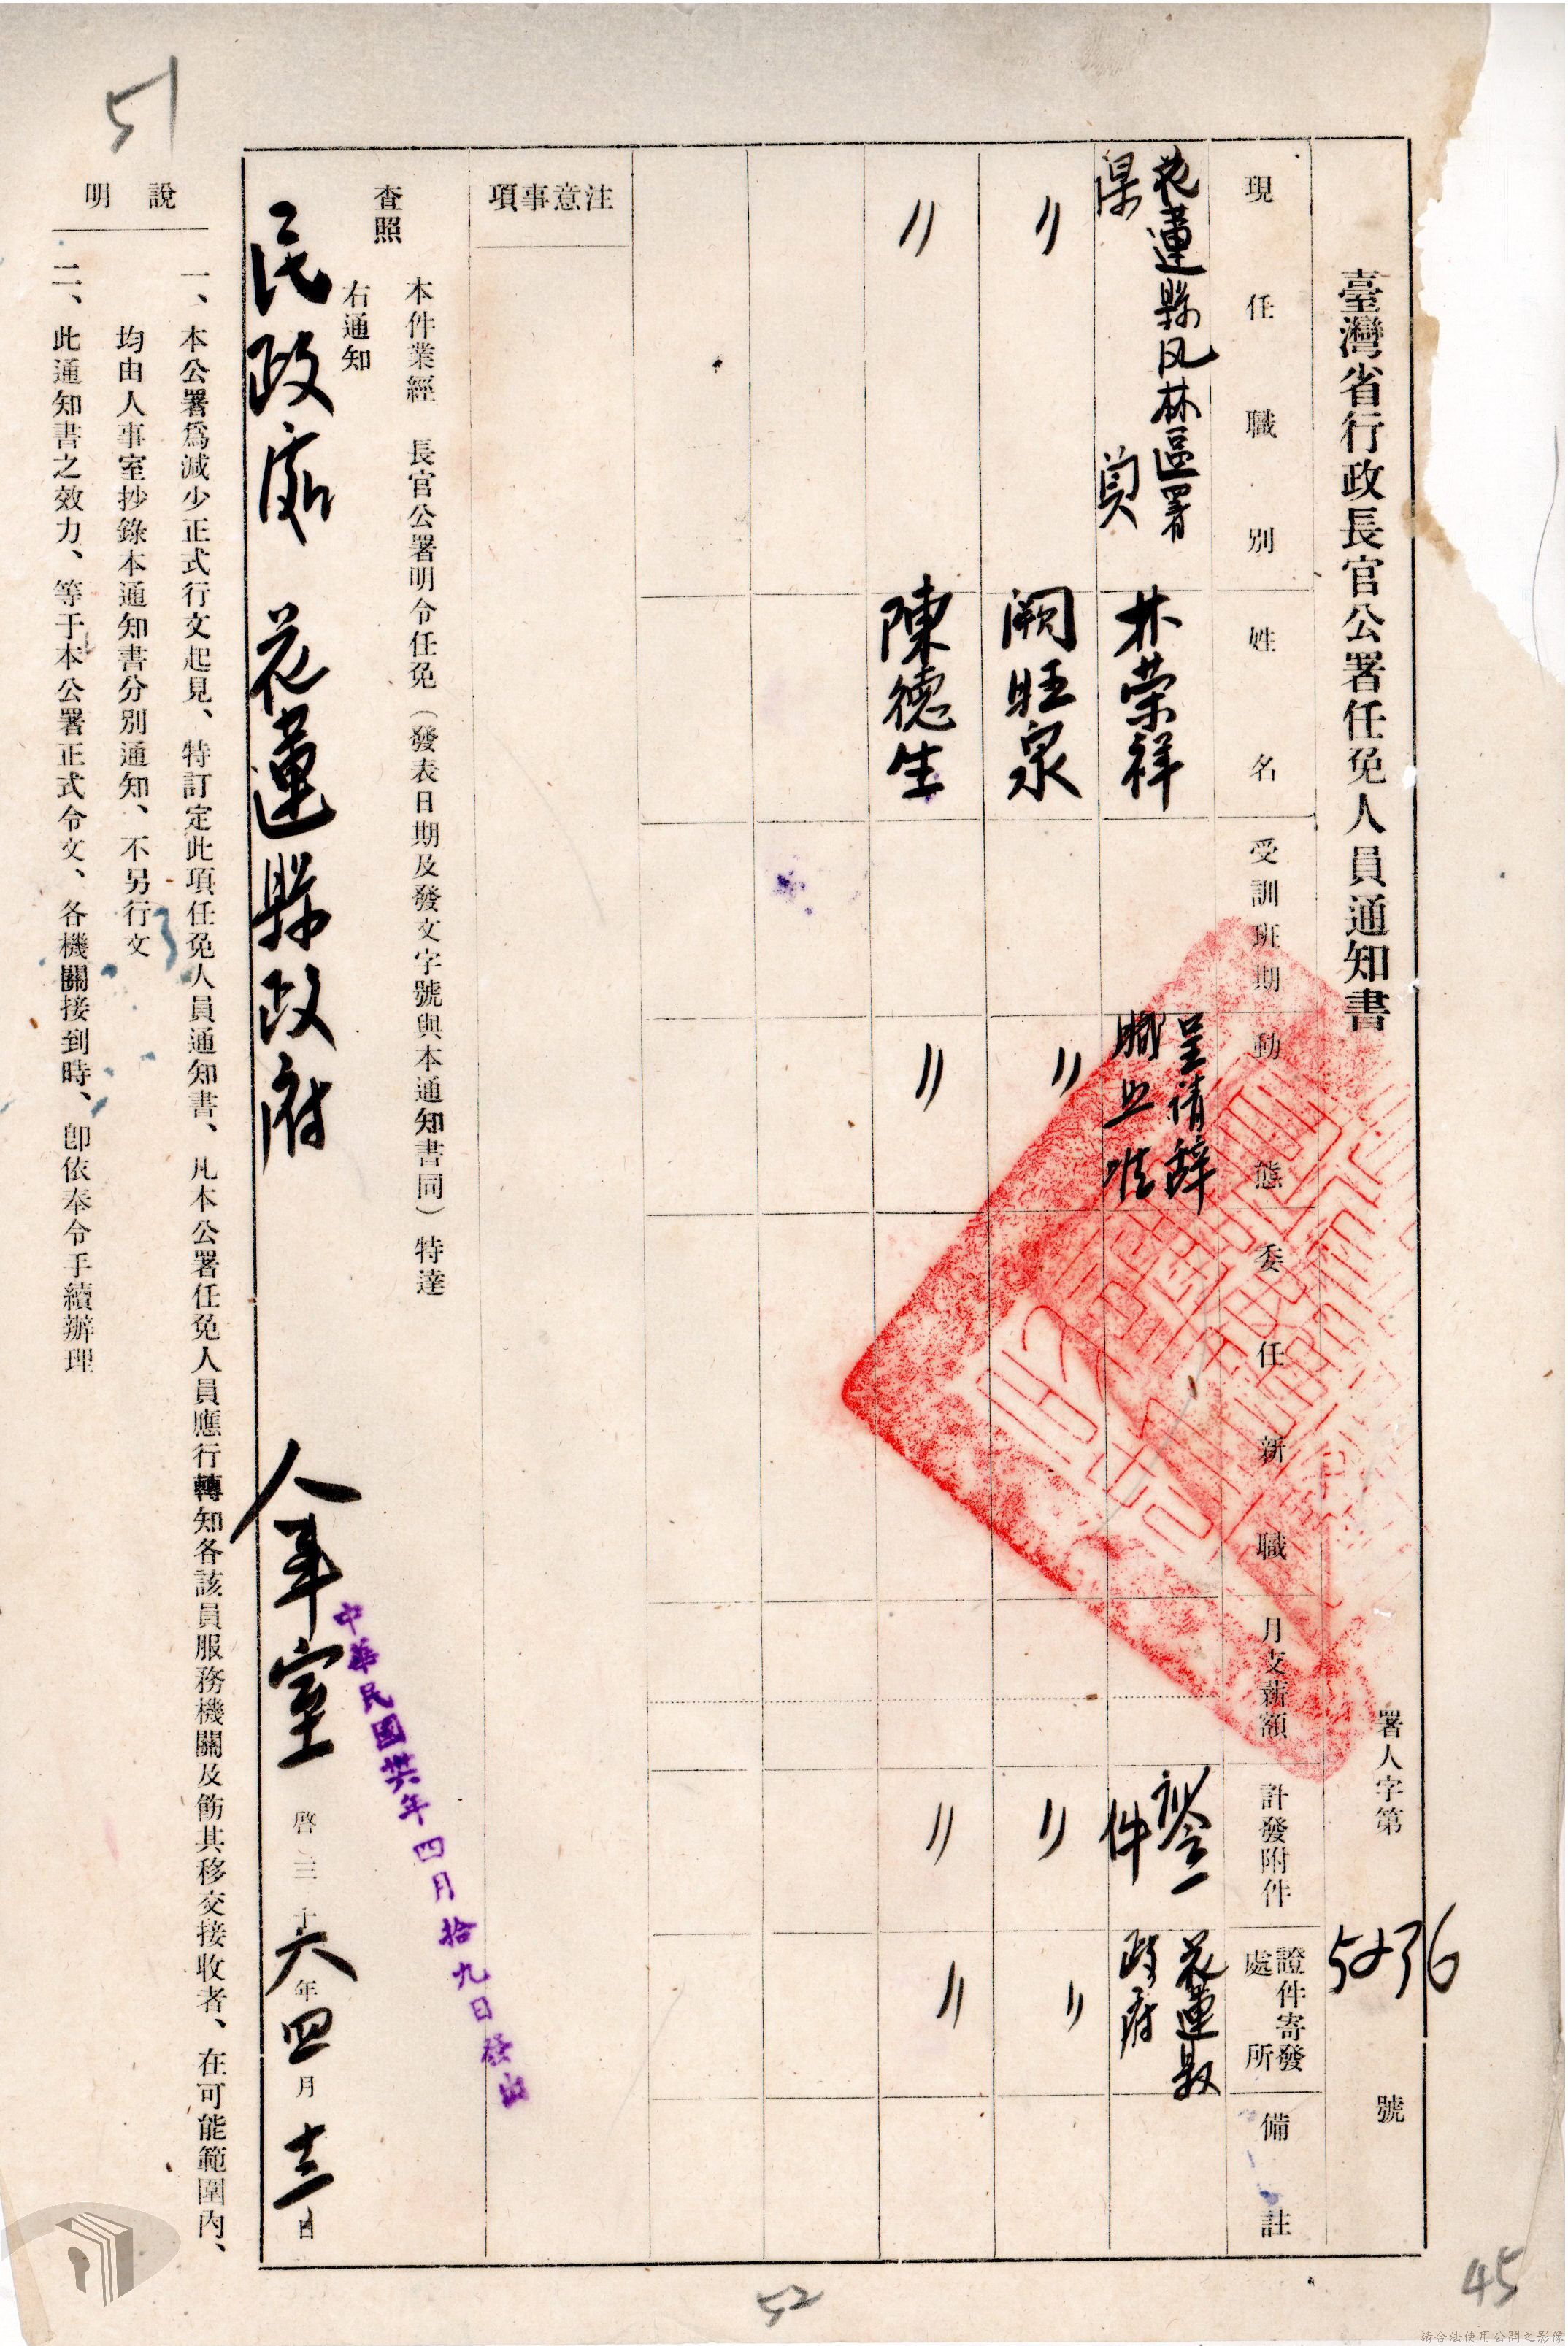 臺灣省行政長官公署任免人員通知書
署人字第5236號
現任職別
姓名
受訓班期
動態
委任新職
月支薪額
計發附件
證件寄發處所
備註
花蓮縣凤林區署
課員
林荣祥
呈請辞
職照准
花蓮县
政府
〃
阙旺泉
〃
〃
〃
〃
陳德生
〃
〃
〃
注意事項
本件業經 長官公署明令任免(發表日期及發文字號與本通知書同)特達
查照
右通知
民政處 花蓮縣政府
人事室 啓 三十六年四月十二日
中華民國卅六年四月拾九日發出
說明
一、本公署爲減少正式行文起見、特訂定此項任免人員通知書、凡本公署任免人員應行轉知各該員服務機關及飭其移交接收者、在可能範圍內、
均由人事室抄錄本通知書分別通知、不另行文
二、此通知書之效力、等于本公署正式令文、各機關接到時、卽依奉令手續辦理
51
52
45
請合法使用公開之影像